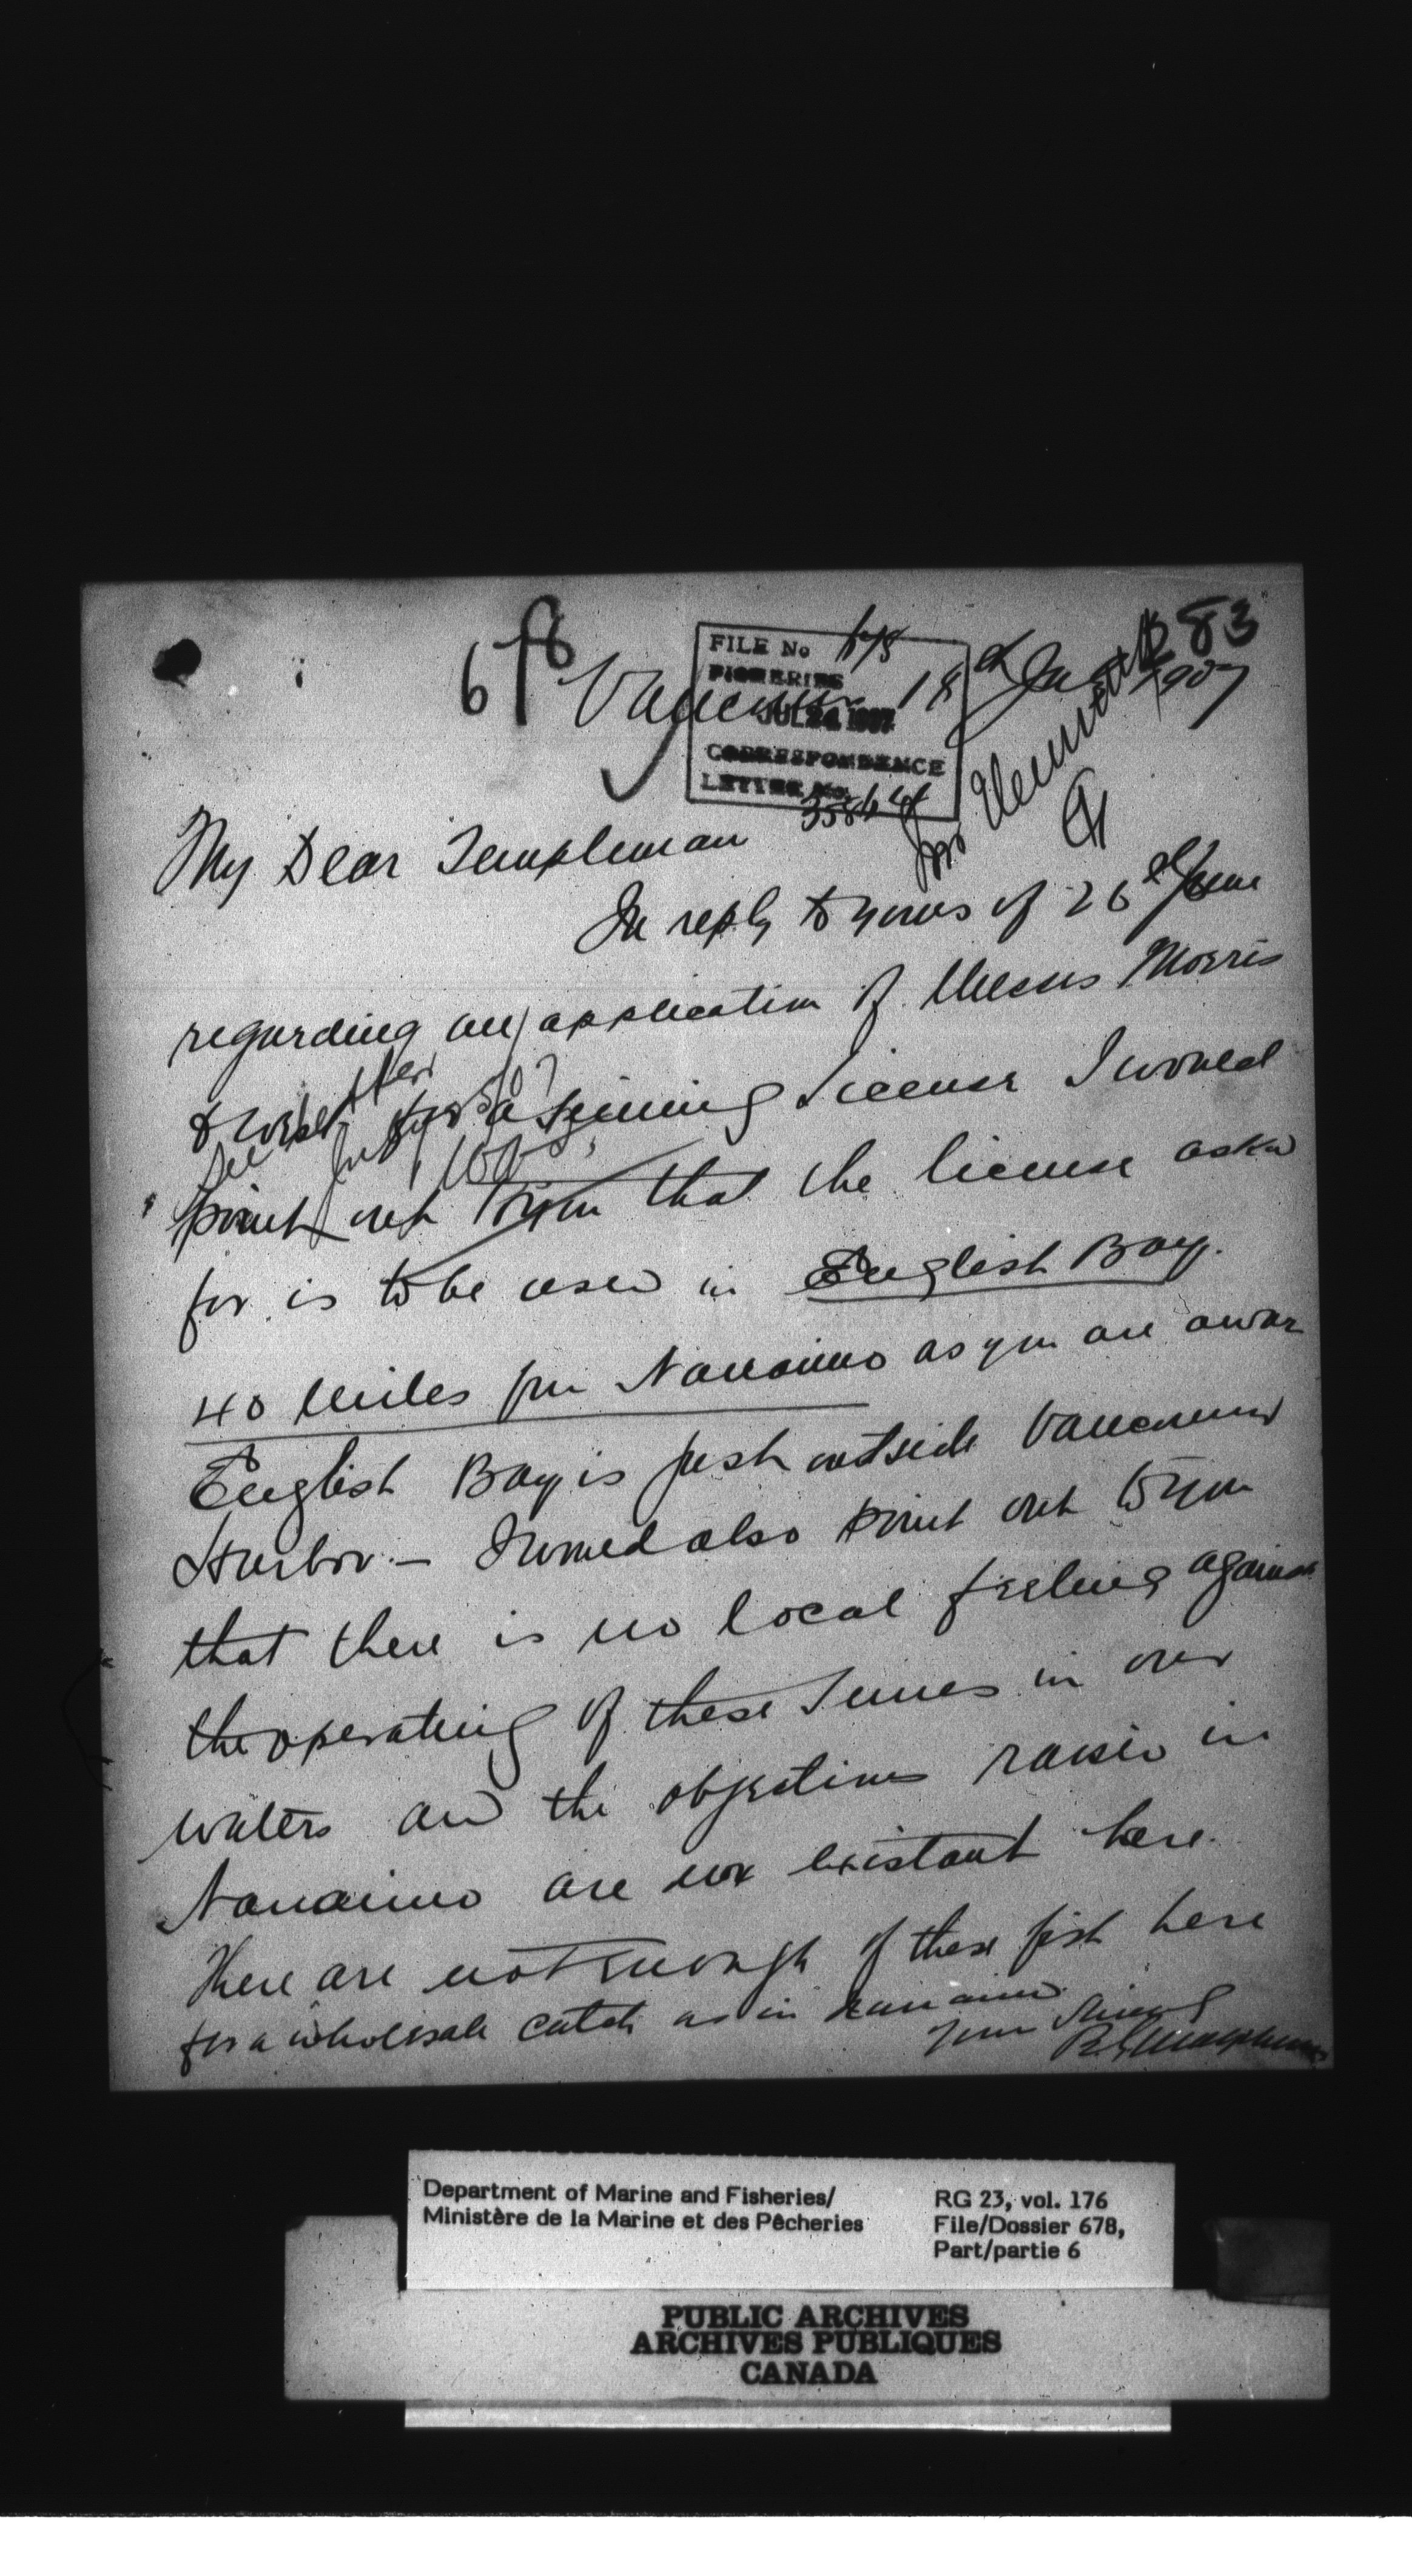 83
678
Vancouver 18th 1907
FILE No 678
FISHERIES
JUL 24 1907
CORRESPONDENCE
LETTER No.
My Dear Templeman
In reply to yours of 26th June
regarding an application of Messrs Morris
& for a seining License I would
point out to you that the license asked
for is to be used in English Bay.
40 miles from Nanaimo as you are aware
English Bay is just outside Vancouver
Harbor. – I would also point out to you
that there is no local feeling against
the operating of these Seines in our
waters and the objections raised in
Nanaimo are not existant here.
There are not enough of these fish here
for a wholesale catch as in Nanaimo.
Yours Sincerely
Department of Marine and Fisheries/
Ministère de la Marine et des Pêcheries
RG 23, vol. 176
File/Dossier 678,
Part/partie 6
PUBLIC ARCHIVES
ARCHIVES PUBLIQUES
CANADA